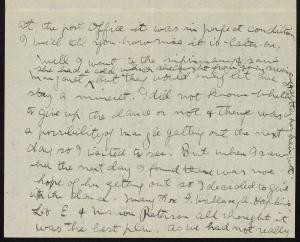 at the post office it was in perfect condition
I will tell you how nice it is later on.
Well I went to the infirmary to see
she had a cold which she got from
Margaret but they would only let me
stay a minute. I did not know whether
to give up the dance or not & there was
a possibility of Margie getting out the next
day so I waited to see. But when I
the next day I found there was not
hope of her getting out so I decided to give
it in the House. Mary Fox J. Wallace, A. Hopkins
Lib E. & Marion Peterson all thought it
was the best plan. As we had not really